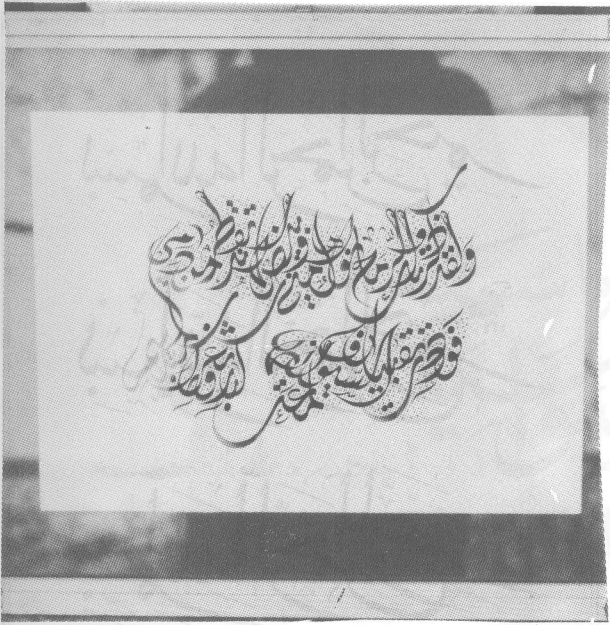 ولقد ذكرتك والرماح نواهل مني وبيض الهند تقطر من دمي
فوددت تقبيل السيوف لأنها لمعت كبارق ثغرك المتبسم